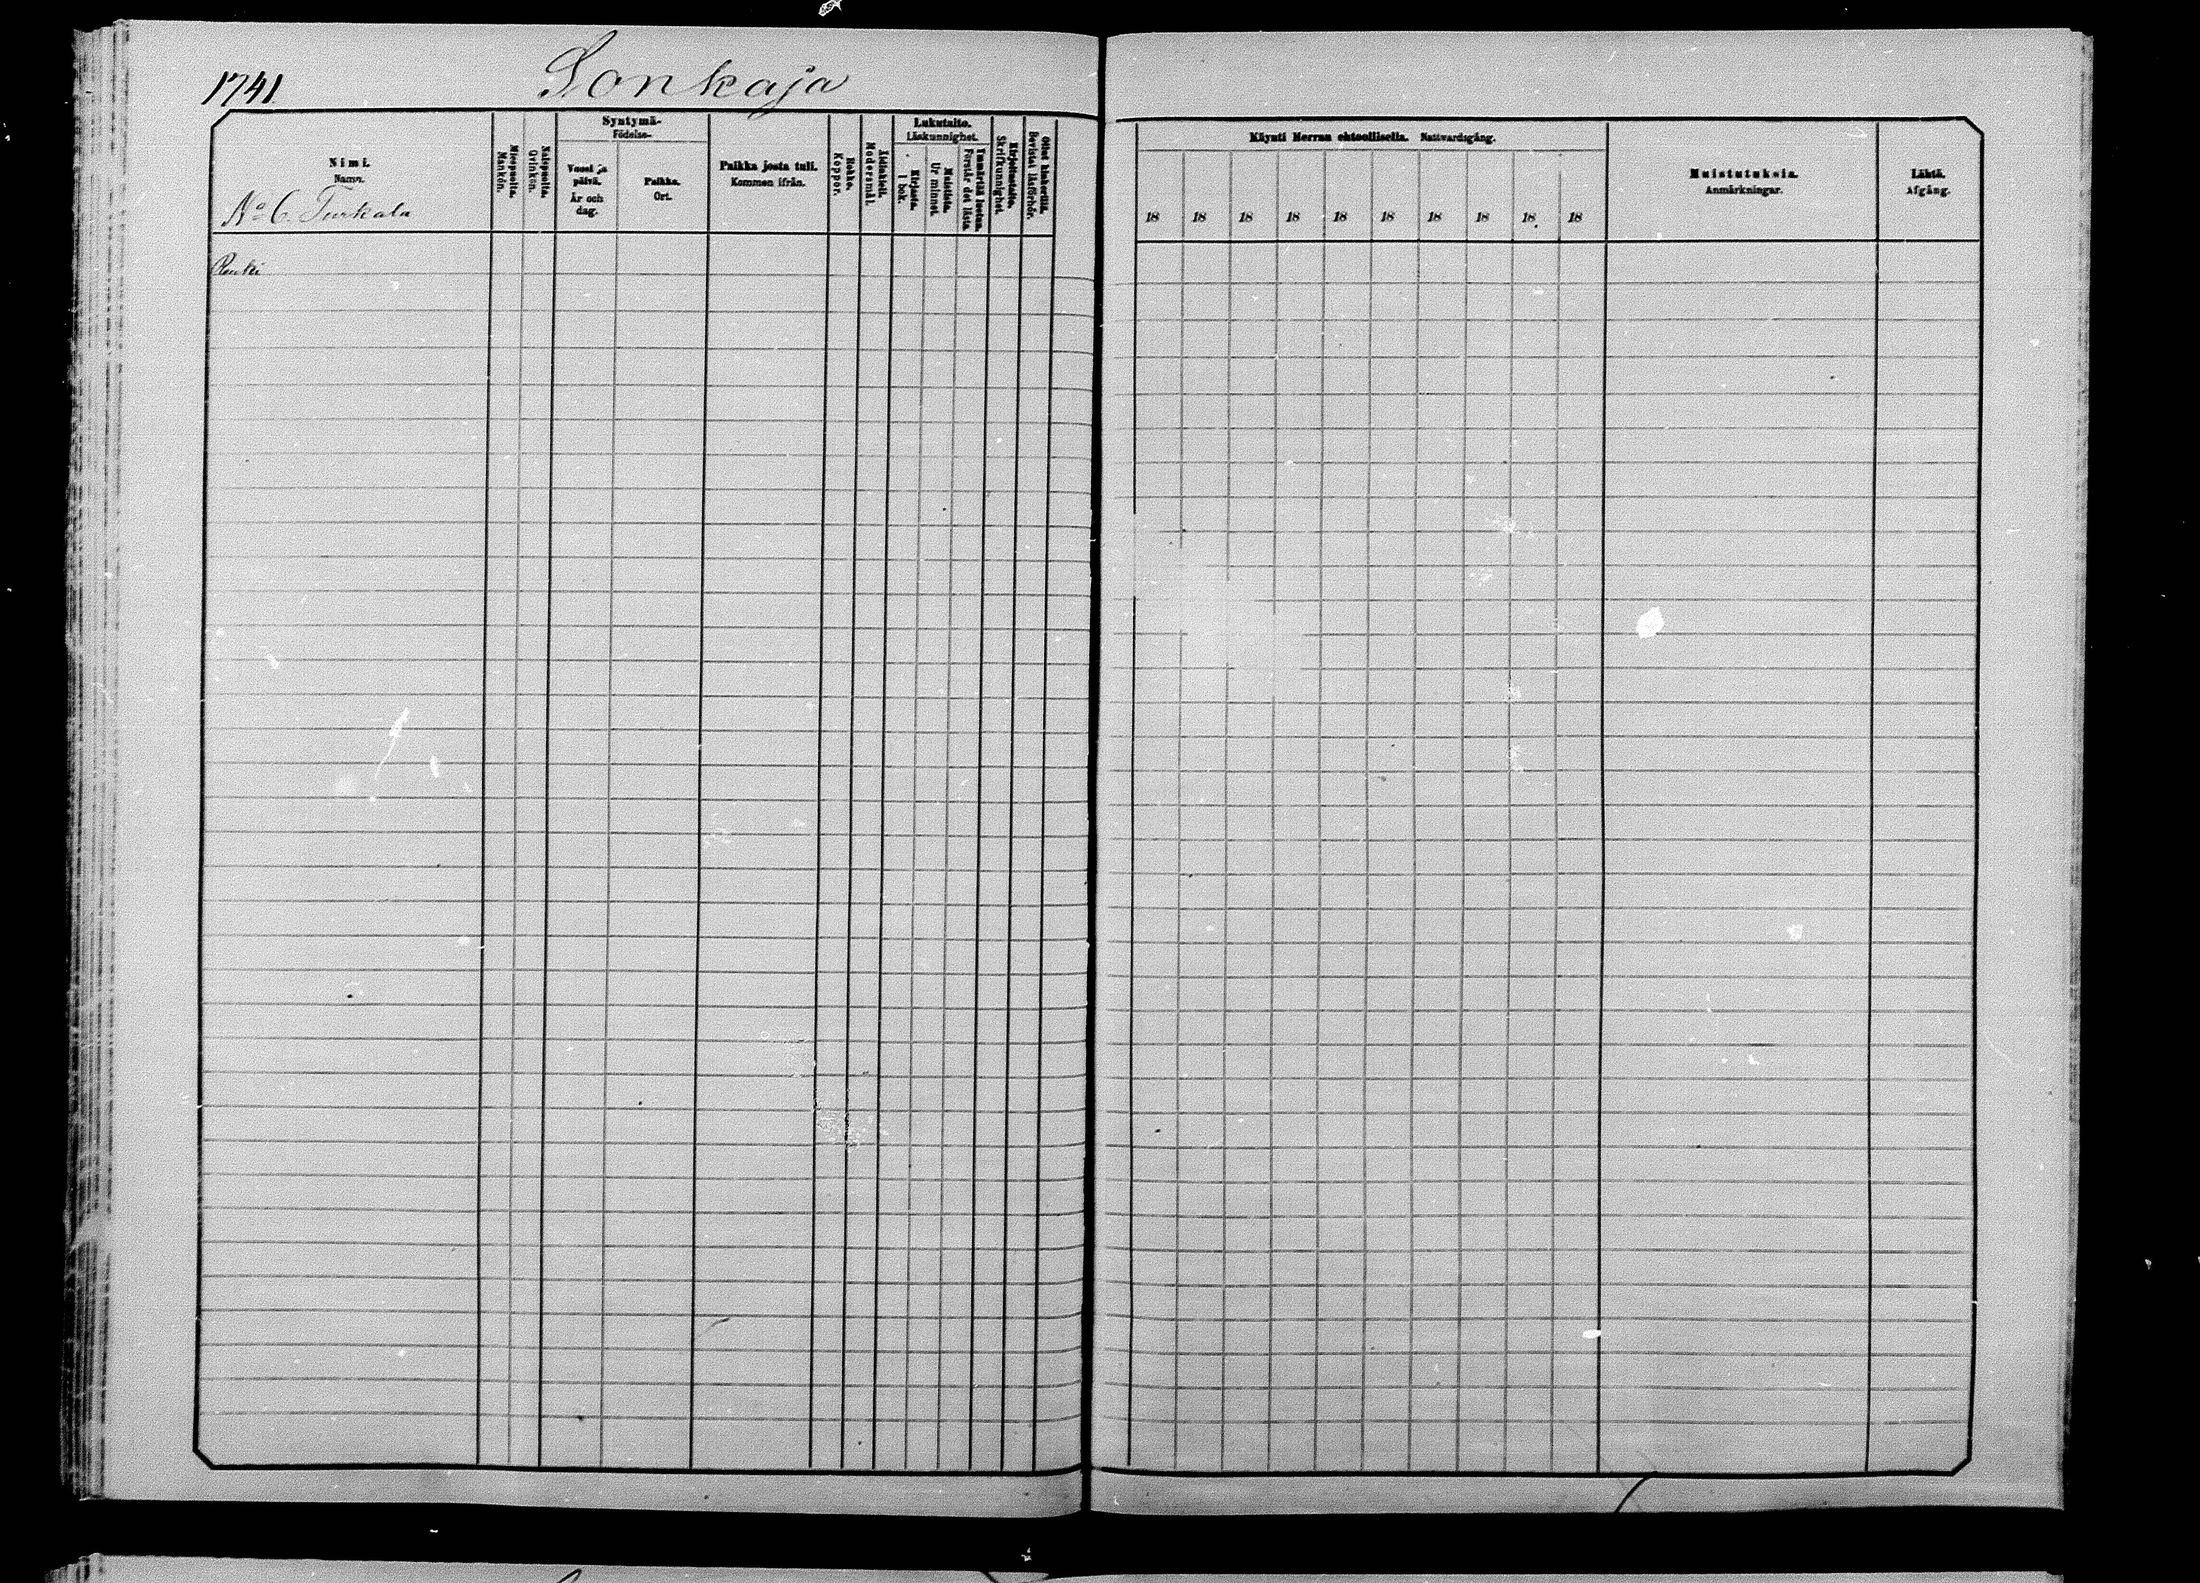 1741
Sonkaja
Nimi.
Namn.
No 6. Turkala
Miespuolta.
Mankön.
Naispuolta.
Qvinkön.
Syntymä-
Födelse-
Vuosi ja
päivä.
År och
dag.
Paikka.
Ort.
Paikka josta tuli.
Kommen ifrån.
Rokko.
Koppor.
Äidinkieli.
Modersmål.
Lukutaito.
Läskunnighet.
Kirjasta.
I bok.
Muistista.
Ur minnet.
Ymmärtää luetun.
Förstår det lästa.
Kirjoitustaito.
Skrifkunnighet.
Ollut kinkerillä.
Bevistat läsförhör.
Käynti Herran ehtoollisella. Nattvardsgång.
18 18 18 18 18 18 18 18 18 18
Muistutuksia.
Anmärkningar.
Lähtö.
Afgång.
Renki